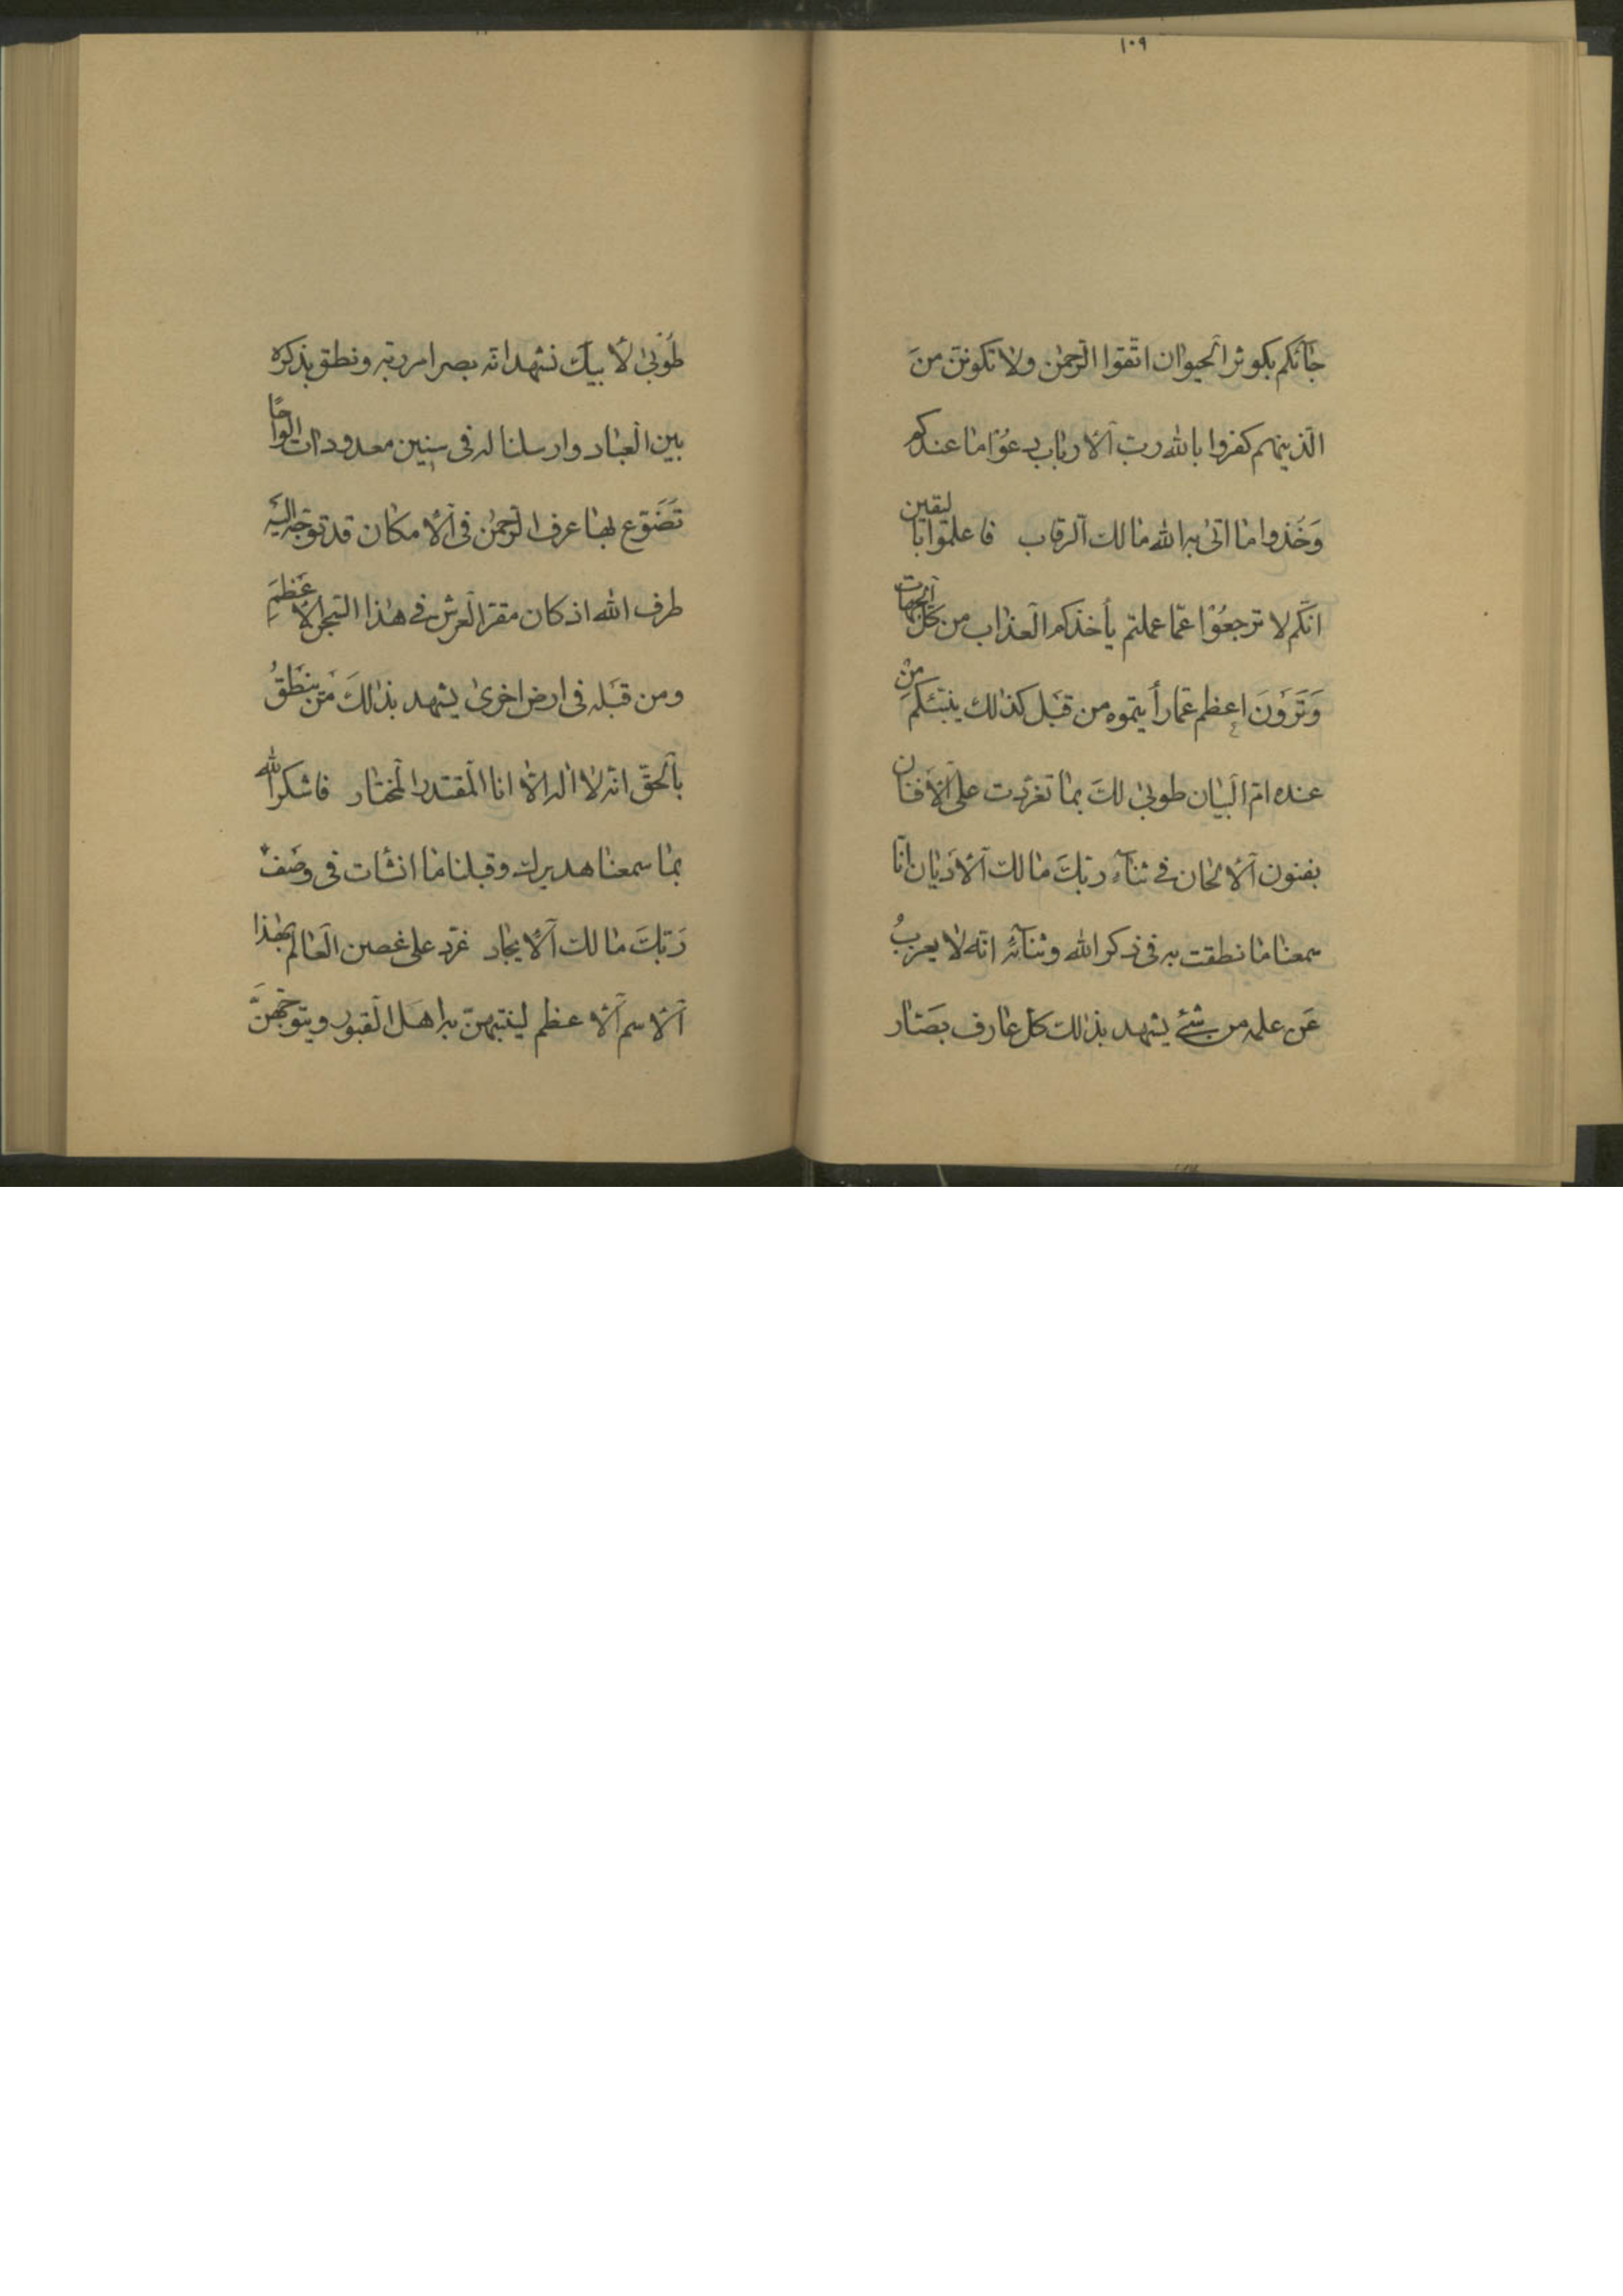 ١٠٩
جآئكم بكوثر الحيوان اتّقوا الرّحمن ولا تكوننّ منَ
الّذينهم كفروا بالله ربّ الأرباب دعُوا ما عندكم
وَخذوا ما اتى به الله مالك الرّقاب فاعلموا باليقين
انّكم لا ترجعُوا عمّا عملتم يأخذكم العذاب من كلّ الجهات
وَتَرَوْنَ اعظم عمّا رأيتموه من قبل كذلك ينبّئكم منْ
عنده امّ البيان طوبى لكَ بما تغرّدت على الأفنان
بفنون الألحان فى ثنآء ربّكَ مالك الأديان انّا
سمعنا ما نطقت به فى ذكر الله وثنآئه انّه لا يعزبُ
عَن علمه من شئ يشهد بذلك كل عارف بصّار
طوُبى لأبيك نشهد انّه بصر امر ربّه ونطق بذكره
بين العباد وارسلنا له فى سنين معدودات الواحًا
تضَوّع بها عرف الرّحمن فى الأمكان قد توجّه اليه
طرف الله اذ كان مقرّ العرش فى هذا السّجن الأعظم
ومن قبله فى ارض اخرى يشهد بذلكَ مَن ينطقُ
بالحقّ انّه لا اله الّا انا المقتدر المختار فاشكر الله
بما سمعنا هديرك وقبلنا ما انشأت فى وصف
ربّكَ مالك الأيجاد غرّد على غصن العالم بهذا
الأسم الأعظم لينتبهنّ به اهل القبور ويتوجّهنَّ